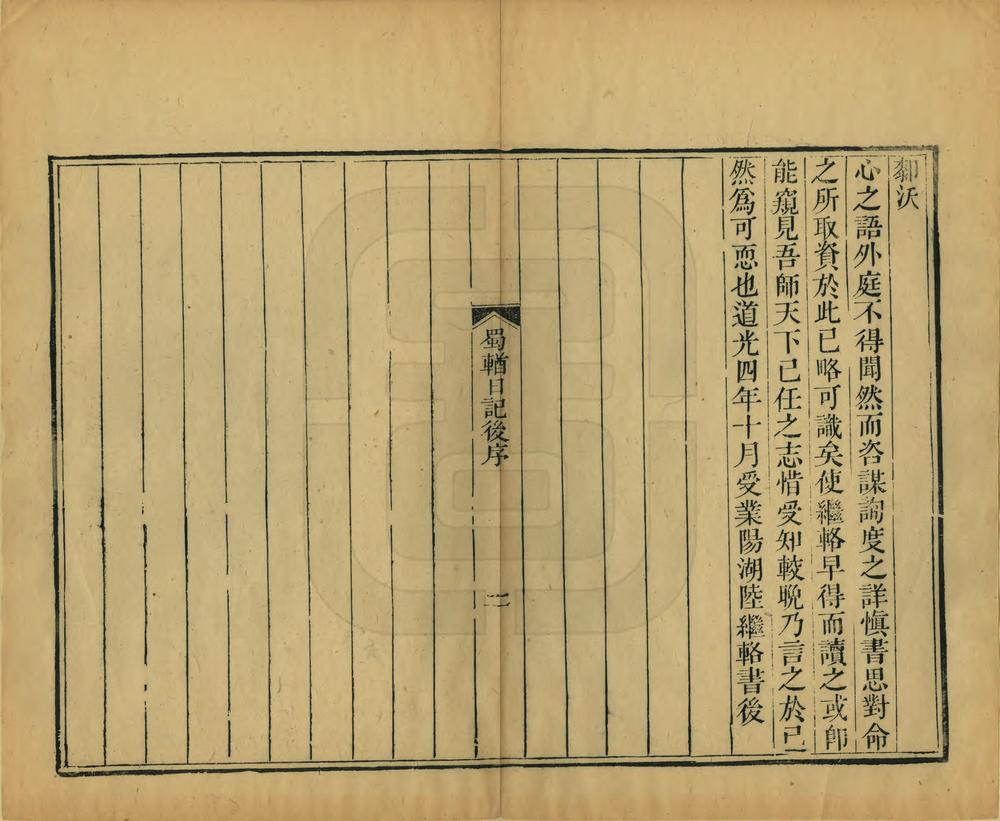 鄰沃
心之語外庭不得聞然而咨謀詢度之詳愼書思對命
之所取資於此已略可識矣使繼輅早得而讀之或卽
能窺見吾師天下己任之志惜受知較晚乃言之於已
然爲可恧也道光四年十月受業陽湖陸繼輅書後
蜀輶日記後序
二